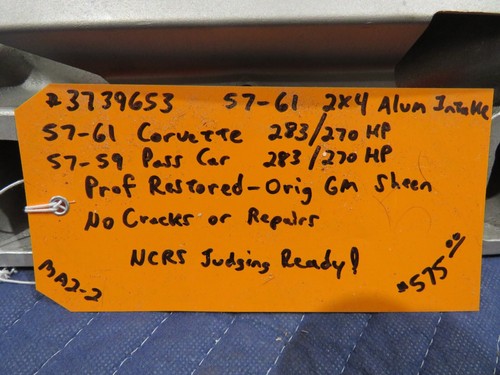 #3739653 57-61 2x4 Alum Intake
57-61 Corvette 283/270 HP
57-59 Pass Car 283/270 HP
Prof Restored - Orig GM Sheen
No Cracks or Repairs
NCRS Judging Ready!
BA2-2
$575.00